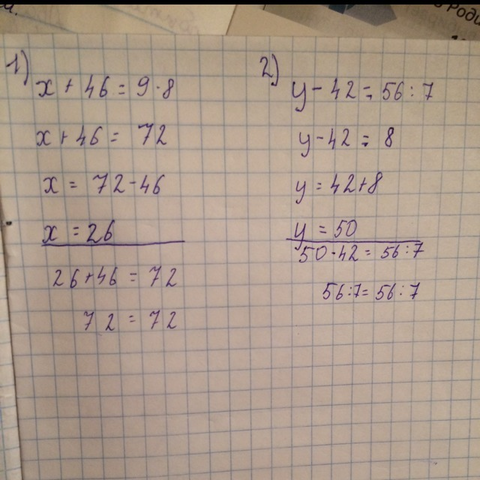 1)
x + 46 = 9 · 8
x + 46 = 72
x = 72 - 46
x = 26
26 + 46 = 72
72 = 72
2)
y - 42 = 56 : 7
y - 42 = 8
y = 42 + 8
y = 50
50 - 42 = 56 : 7
56 : 7 = 56 : 7